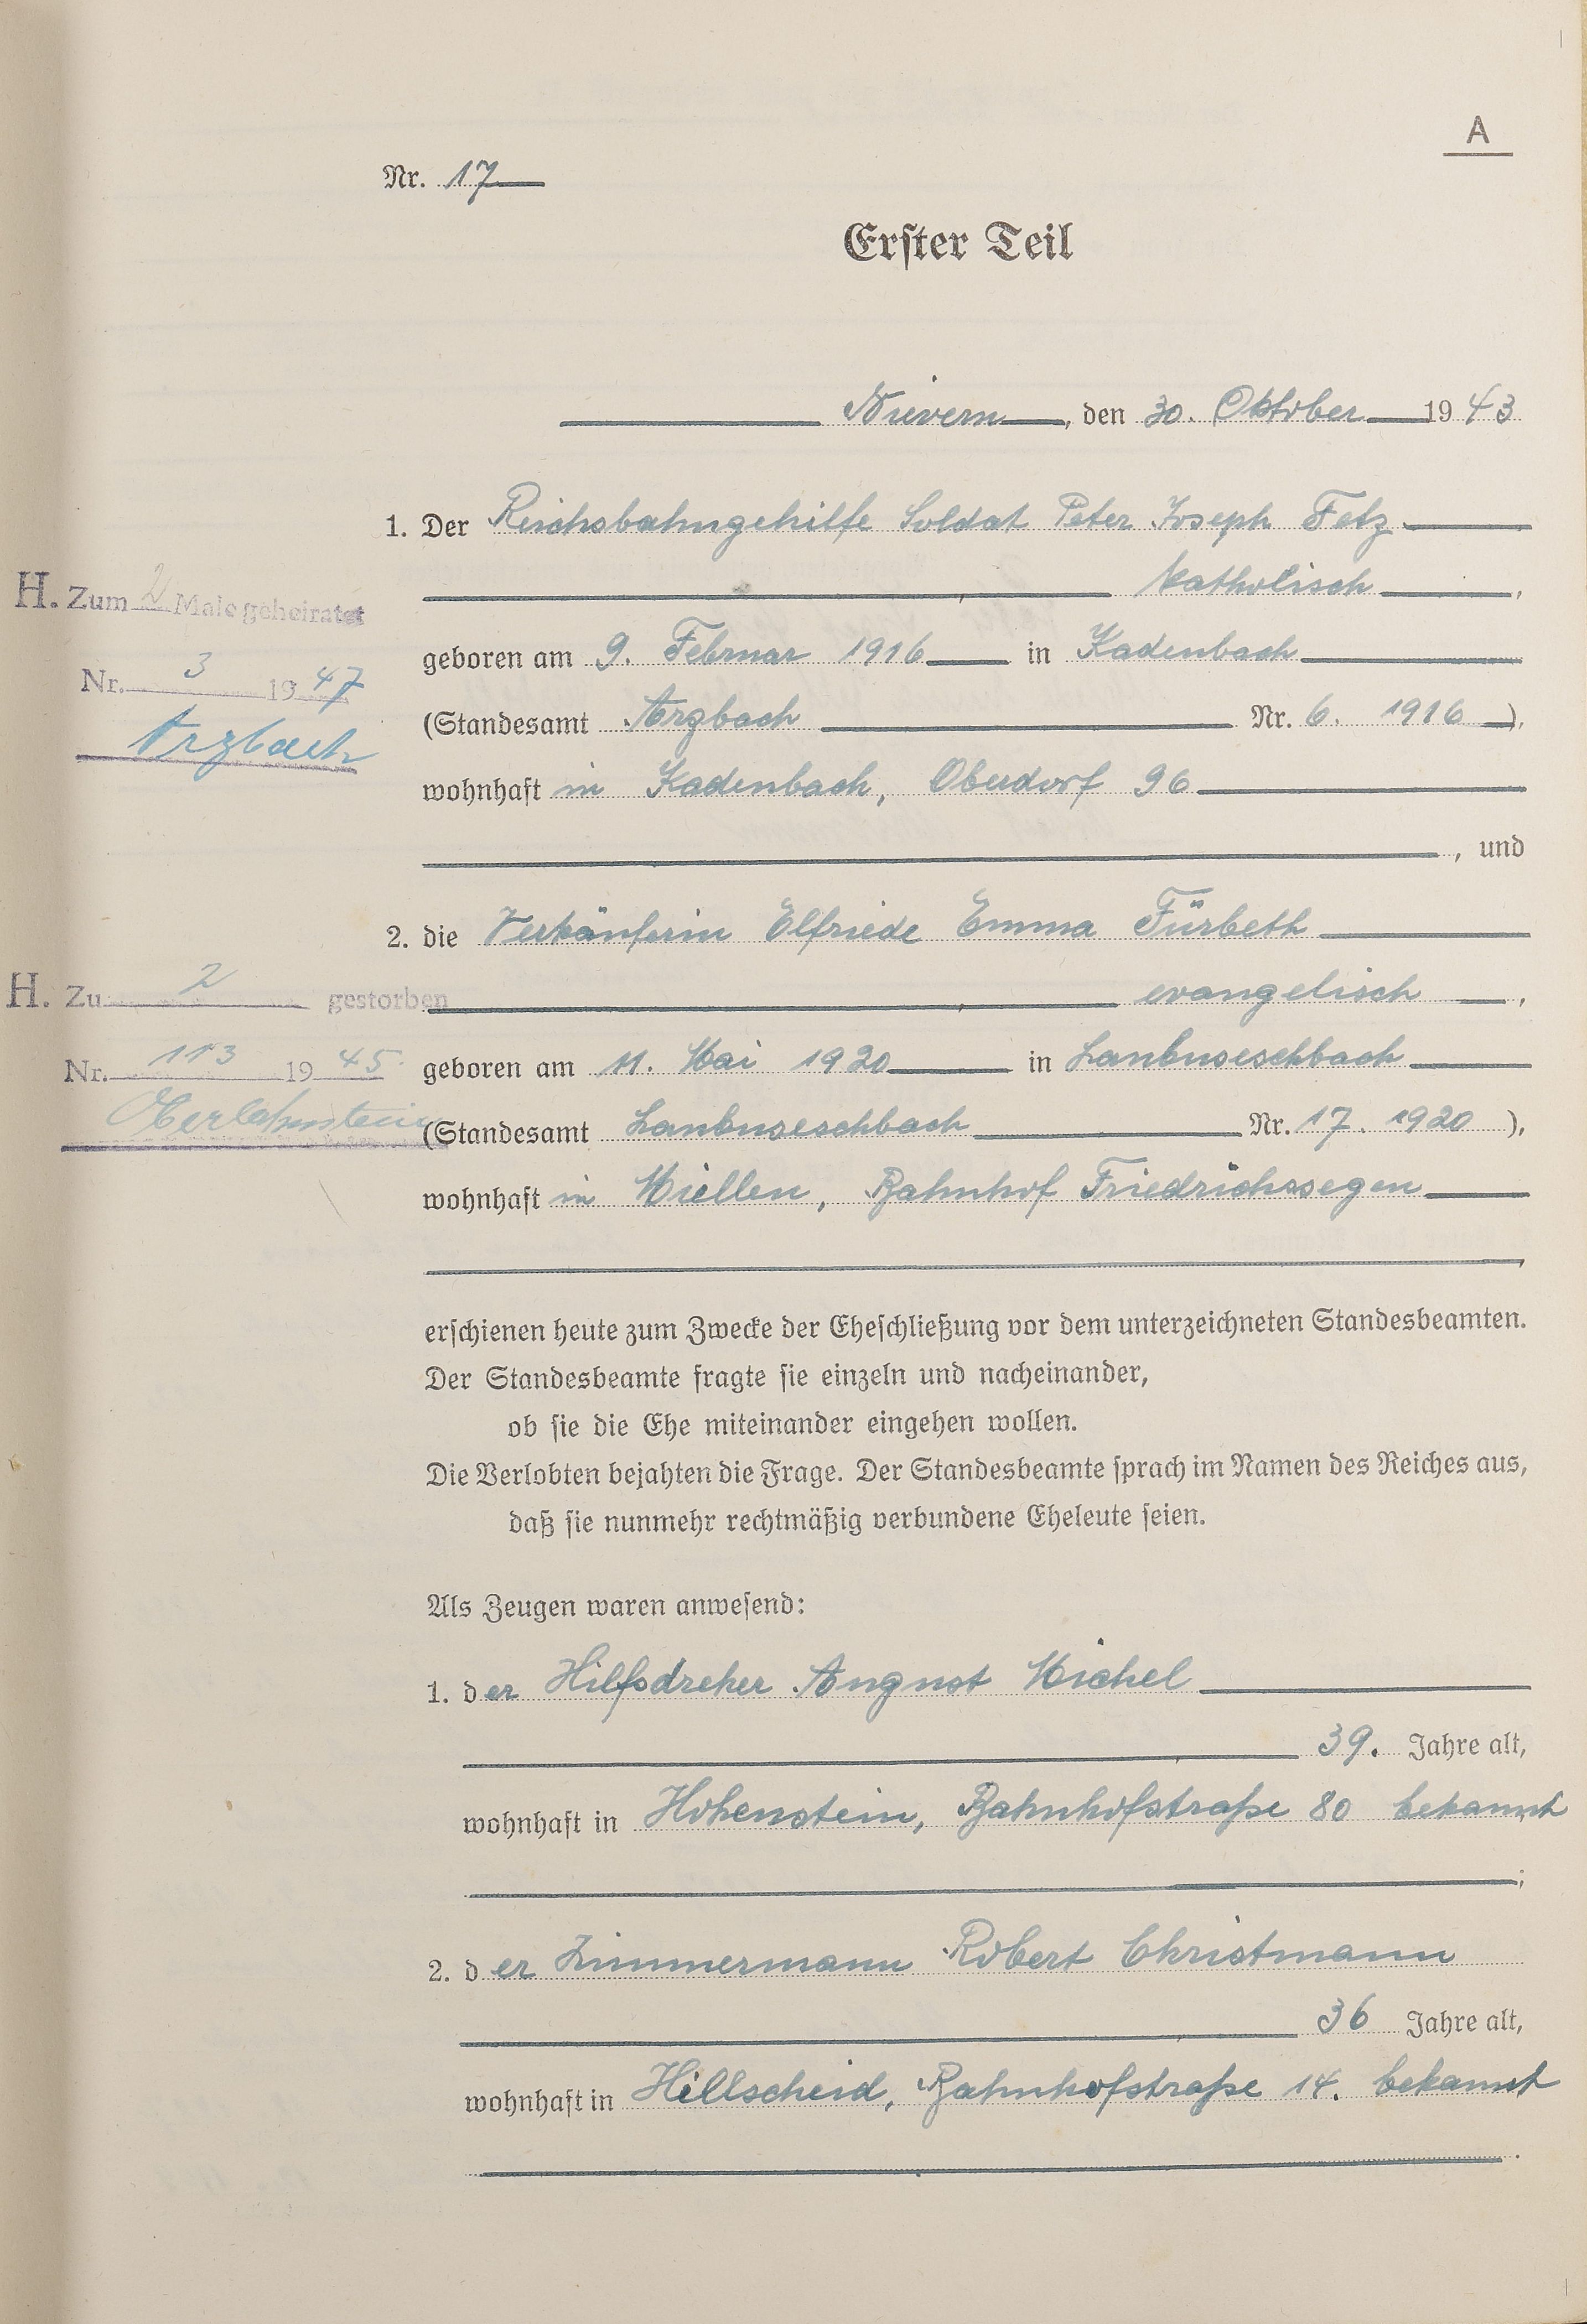 A
Nr. 17
Erster Teil
Nievern, den 30. Oktober 1943
1. Der Reichsbahngehilfe Soldat Peter Joseph Fetz
katholisch,
H. Zum 2 Male geheiratet
geboren am 9. Februar 1916 in Kadenbach
Nr. 3 1947
(Standesamt Arzbach Nr. 6. 1916),
Arzbach
wohnhaft in Kadenbach, Oberdorf 96
, und
2. die Verkäuferin Elfriede Emma Fürbeth
H. Zu 2 gestorben
evangelisch,
geboren am 11. Mai 1920 in Laubuseschbach
Nr. 113 1945
(Standesamt Laubuseschbach Nr. 17. 1920),
Oberlahnstein
wohnhaft in Miellen, Bahnhof Friedrichssegen
,
erschienen heute zum Zwecke der Eheschließung vor dem unterzeichneten Standesbeamten.
Der Standesbeamte fragte sie einzeln und nacheinander,
ob sie die Ehe miteinander eingehen wollen.
Die Verlobten bejahten die Frage. Der Standesbeamte sprach im Namen des Reiches aus,
daß sie nunmehr rechtmäßig verbundene Eheleute seien.
Als Zeugen waren anwesend:
1. der Hilfsdreher August Michel
39. Jahre alt,
wohnhaft in Hohenstein, Bahnhofstraße 80 bekannt
;
2. der Zimmermann Robert Christmann
36 Jahre alt,
wohnhaft in Hillscheid, Bahnhofstraße 14. bekannt
.